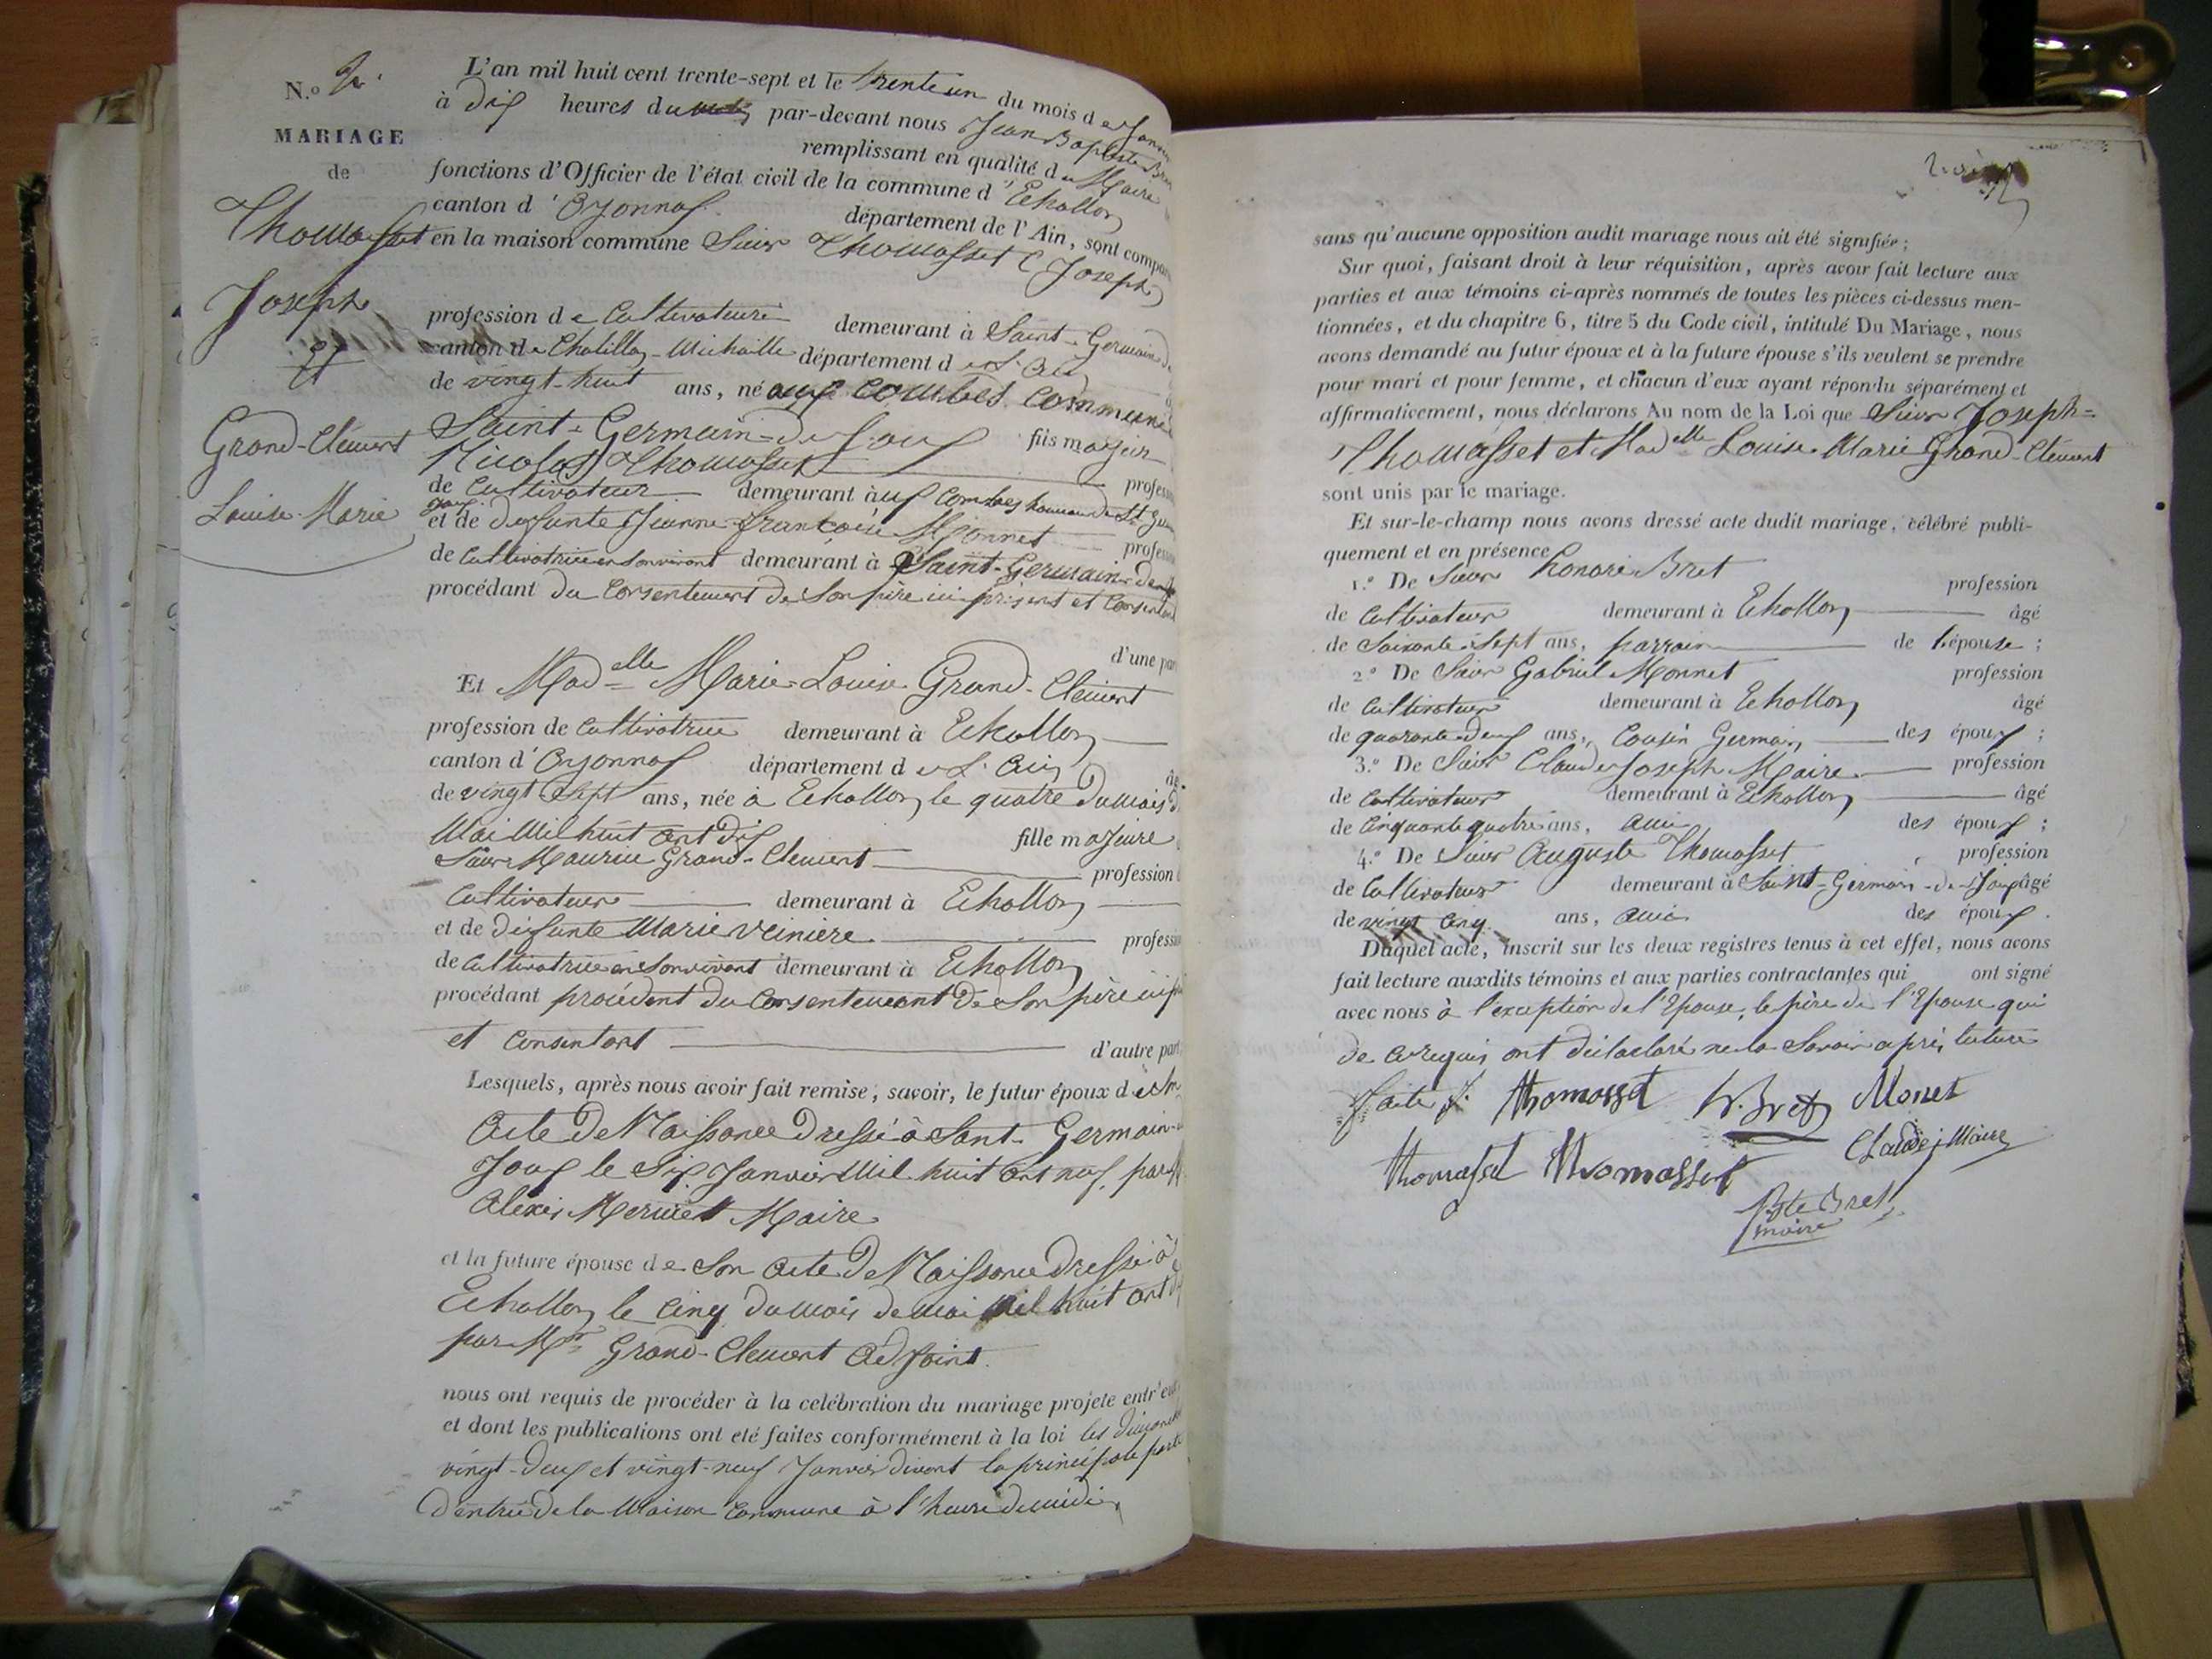 N.o 2.
MARIAGE
de
Thomasset
Joseph
Et
Grand-Clément
Louise-Marie
L'an mil huit cent trente-sept et le trente un du mois de Janvier
à dix heures du matin par-devant nous Jean Baptiste Bret
remplissant en qualité de Maire
fonctions d'Officier de l'état civil de la commune d'Echallon
canton d'Oyonnax département de l'Ain, sont compa
en la maison commune Sieur Thomasset Joseph
profession de Cultivateur demeurant à Saint-Germain d
canton de Chatillon-Michaille département de L'Ain
de vingt-huit ans, né aux combes commune
Saint-Germain-de Joux fils majeur
Nicolas Thomasset profess
de Cultivateur demeurant à aux Combes hameau de St Ger
et de defunte Jeanne-françoise Monnet profess
de Cultivatrice en Son vivant demeurant à Saint-Germain-de
procédant du Consentement de Son père ici présent et Consentant
d'une par
Et Madelle Marie-Louise Grand-Clément
profession de Cultivatrice demeurant à Echallon
canton d'Oyonnax département de L'Ain âg
de vingt Sept ans, née à Echallon le quatre du mois d
Mai Mil huit Cent dix fille majeure
Sieur Maurice Grand-Clement profession
Cultivateur demeurant à Echallon
et de défunte Marie veiniere profession
de Cultivatrice en Son vivant demeurant à Echallon
procédant procédent du Consentement de Son père ici p
et Consentant d'autre part
Lesquels, après nous avoir fait remise, savoir, le futur époux de Son
Acte De Naissance Dressé à Saint-Germain-
Joux le Six Janvier Mil huit Cent neuf, par
Alexis Mermet Maire
et la future épouse de Son Acte De Naissance Dressé à
Echallon le Cinq du mois de mai Mil huit Cent
par Mr Grand-Clement Adjoint.
nous ont requis de procéder à la celébration du mariage projete entr'eux
et dont les publications ont eté faites conformément à la loi les dimanches
vingt-deux et vingt-neuf Janvier divant la principale porte
D'entrée De la Maison Commune à l'heure de midi,
sans qu'aucune opposition audit mariage nous ait été signifiée;
Sur quoi, faisant droit à leur réquisition, après avoir fait lecture aux
parties et aux témoins ci-après nommés de toutes les pièces ci-dessus men-
tionnées, et du chapitre 6, titre 5 du Code civil, intitulé Du Mariage, nous
avons demandé au futur époux et à la future épouse s'ils veulent se prendre
pour mari et pour femme, et chacun d'eux ayant répondu séparément et
affirmativement, nous déclarons Au nom de la Loi que Sieur Joseph=
Thomasset et Madelle Louise-Marie Grand-Clément
sont unis par le mariage.
Et sur-le-champ nous avons dressé acte dudit mariage, célébré publi-
quement et en présence
1.o De Sieur honoré Bret profession
de Cultivateur demeurant à Echallon âgé
de Soixante-Sept ans, parrain de l'épouse;
2.o De Sieur Gabriel Monnet profession
de Cultivateur demeurant à Echallon âgé
de quarante-deux ans, Cousin Germain des époux;
3.o De Sieur Claude Joseph Maire profession
de Cultivateur demeurant à Echallon âgé
de Cinquante quatre ans, Ami des époux;
4.o De Sieur Auguste Thomasset, profession
de Cultivateur demeurant à Saint-Germain-de Joux âgé
de vingt Cinq ans, Ami des époux.
Duquel acte, inscrit sur les deux registres tenus à cet effet, nous avons
fait lecture auxdits témoins et aux parties contractantes qui ont signé
avec nous à l'exception de l'Epouse, le père de l'Epouse qui
de Ce requis ont déclaclaré ne le Savoir après lecture
faite J. thomasset h. Bret Monet
thomasset thomasset Claude j Maire
Bte Bret
maire